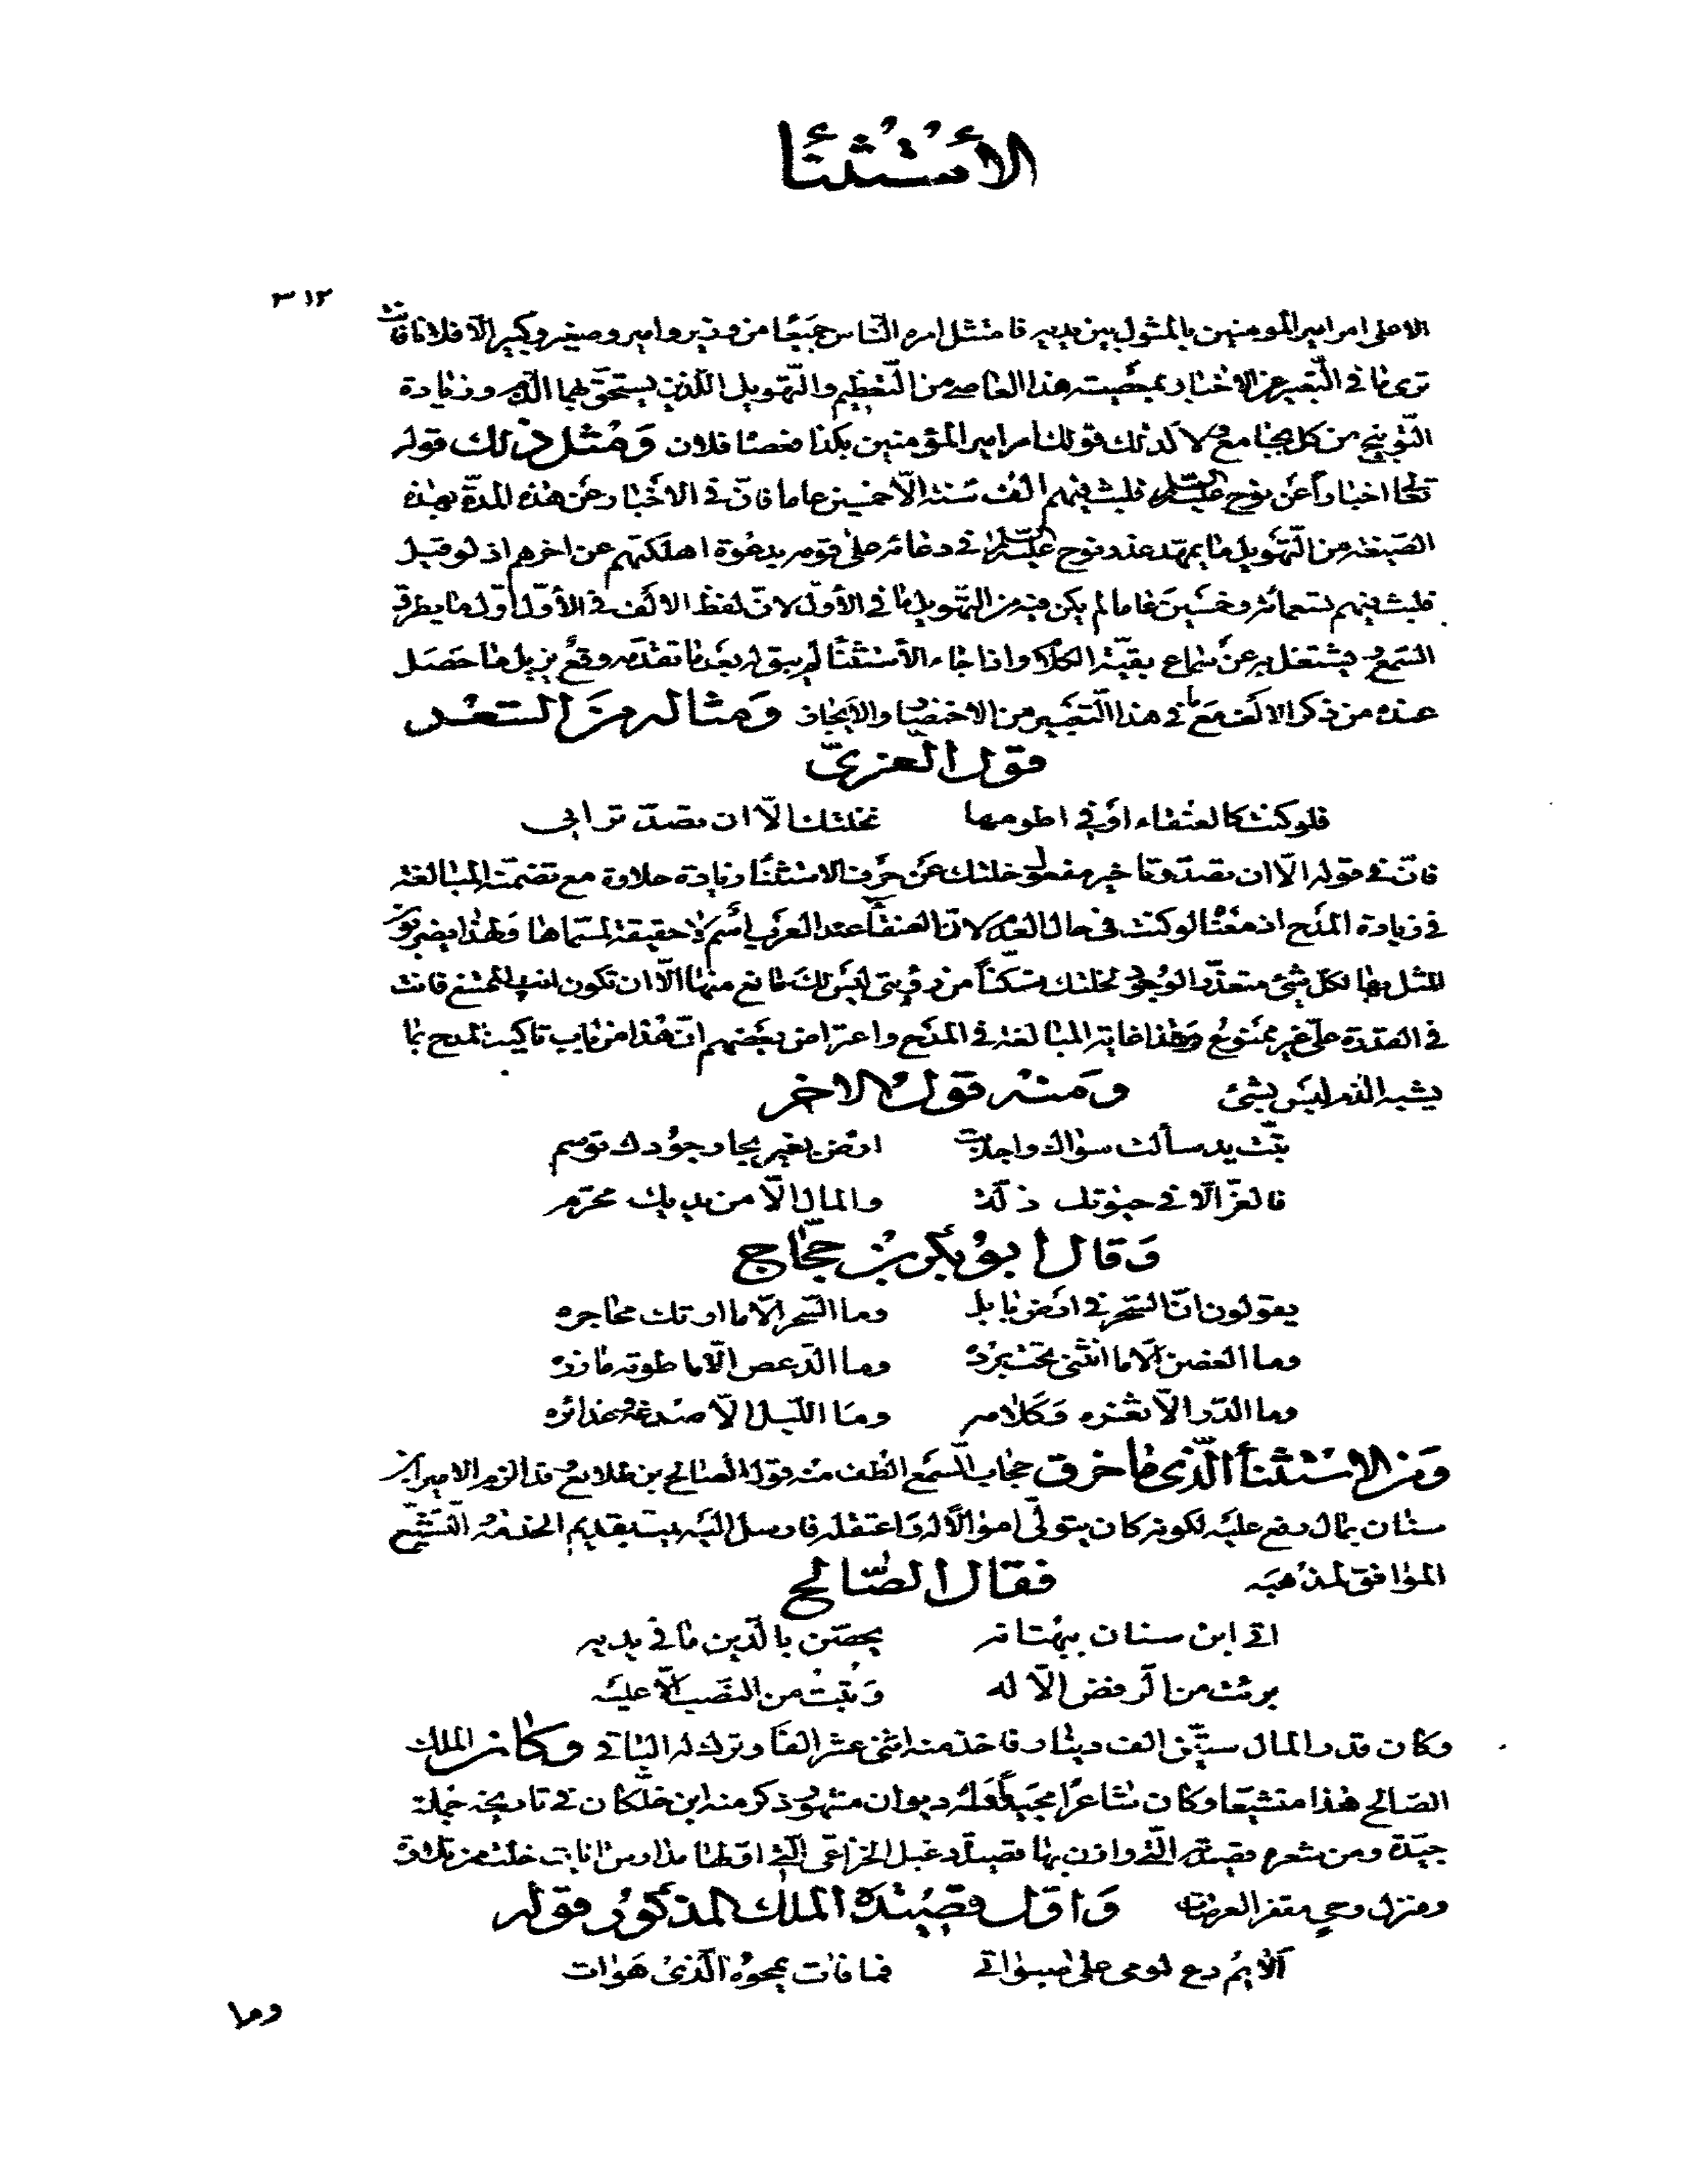 الأستثنأ
٣١٢
الاعلى امر امير المومنين بالمثول بين يديه فامتثل امره النّاس جميعًا من وزير وامير وصغير وكبير الّا فلانا فانت
ترى ما فى التّعبير عن الاخبار بمعصيته هذا العاصى من التّعظيم والتّهويل اللّذين يستحقّ بهما الذّم وزيادة
التّوبيخ من كل مجامع ولا كذلك قولك امر امير المؤمنين بكذا فعصا فلان وَمثل ذلك قوله
تعالى اخبارًا عن نوح عليه السلام فلبث فيهم الف سنة الّا خمسين عاما فان فى الاخبار عن هذه المدّة بهذه
الصّيغة من التّهويل ما يمهّد عذر نوح عليه السلام فى دعائه على قومه بدعوة اهلكتهم عن اخرهم اذ لو قيل
فلبث فيهم تسعمائة وخمسين عاما لم يكن فيه من التّهويل ما فى الأول لانّ لفظ الالف فى الأوّل اوّل ما يطرق
السّمع فيشتغل به عن سماع بقيّة الكلام واذا جاء الأستثنأ لم يبق له بعد ما تقدّمه وقع يزيل ما حَصَل
عنده من ذكر الالف مع ما فى هذا التّعبير من الاختصار والأيجاز وَمثاله من الشعر
قول العزىّ
فلو كنت كالعنقاء او فى اطومها نخلتك الّا ان تصدّ ترانى
فانّ فى قوله الّا ان تصدّ وتاخير مفعول خلتك عن حرف الاستثنأ زيادة حلاوة مع تضمّنه المبالغة
فى زيادة المدح اذ معنا لو كنت فى حال العدم لانّ العنقأ عند العرب اسم لا حقيقة لمسمّاها ولهذا يضربون
المثل بها لكل شئ متعذّر الوجود لخلتك متمكنًا من رؤيتى ليس لك مانع منها الّا ان تكون انت الممتنع فانت
فى القدرة علىّ غير ممنوع وهذا غاية المبالغة فى المدح واعتراض بعضهم انّ هذا من باب تاكيد المدح بما
يشبه الذّم ليس بشئ وَمنه قول الاخر
بتّت يد سألت سواك واجدبت ارض بغير بحار جودك توسم
فالعزّ الّا فى حيوتك ذلّة والمال الّا من يديك محرّم
وَقال ابو بكر بن حجّاج
يقولون انّ السّحر فى ارض بابل وما السّحر الّا ما ارتك محاجره
وما الغصن الّا ما انثنى تحت برده وما الدّعص الّا ما طوته مازره
وما الدّر الّا ثغره وَكلامه وما اللّيل الّا صدغه وغدائره
وَمن الاستثنأ الّذى ما خرق حجاب السّمع الطف منه قول الصالح بن طلائع وقد الزم الامير ابن
سنان بمال رفع عليه لكونه كان يتولّى اموالًا له وَاعتقله فارسل اليه يمت بقديم الخدمة والتّشيّع
الموافق لمذهبه فقال الصّالح
اتى ابن سنان ببهتانه يحصّن بالدّين ما فى يديه
برئت من الرّفض الّا له وَتبت من النّصب الّا عليه
وكان قدر المال ستّين الف دينار فاخذ منه اثنى عشر الفا وترك له الباقى وَكان الملك
الصّالح هذا متشيّعا وكان شاعرًا مجيدًا وله ديوان مشهور ذكر منه ابن خلّكان فى تاريخه جملة
جيّدة ومن شعره قصيدته الّتى وازن بها قصيدة دعبل الخزاعىّ الّتى اوّلها مدارس ايات خلت من تلاوة
ومنزل وحى مقفر العرصات وَاوّل قصيدة الملك المذكور قوله
الائم دع لومى على صبواتى فما فات يمحوه الّذى هو ات
وما